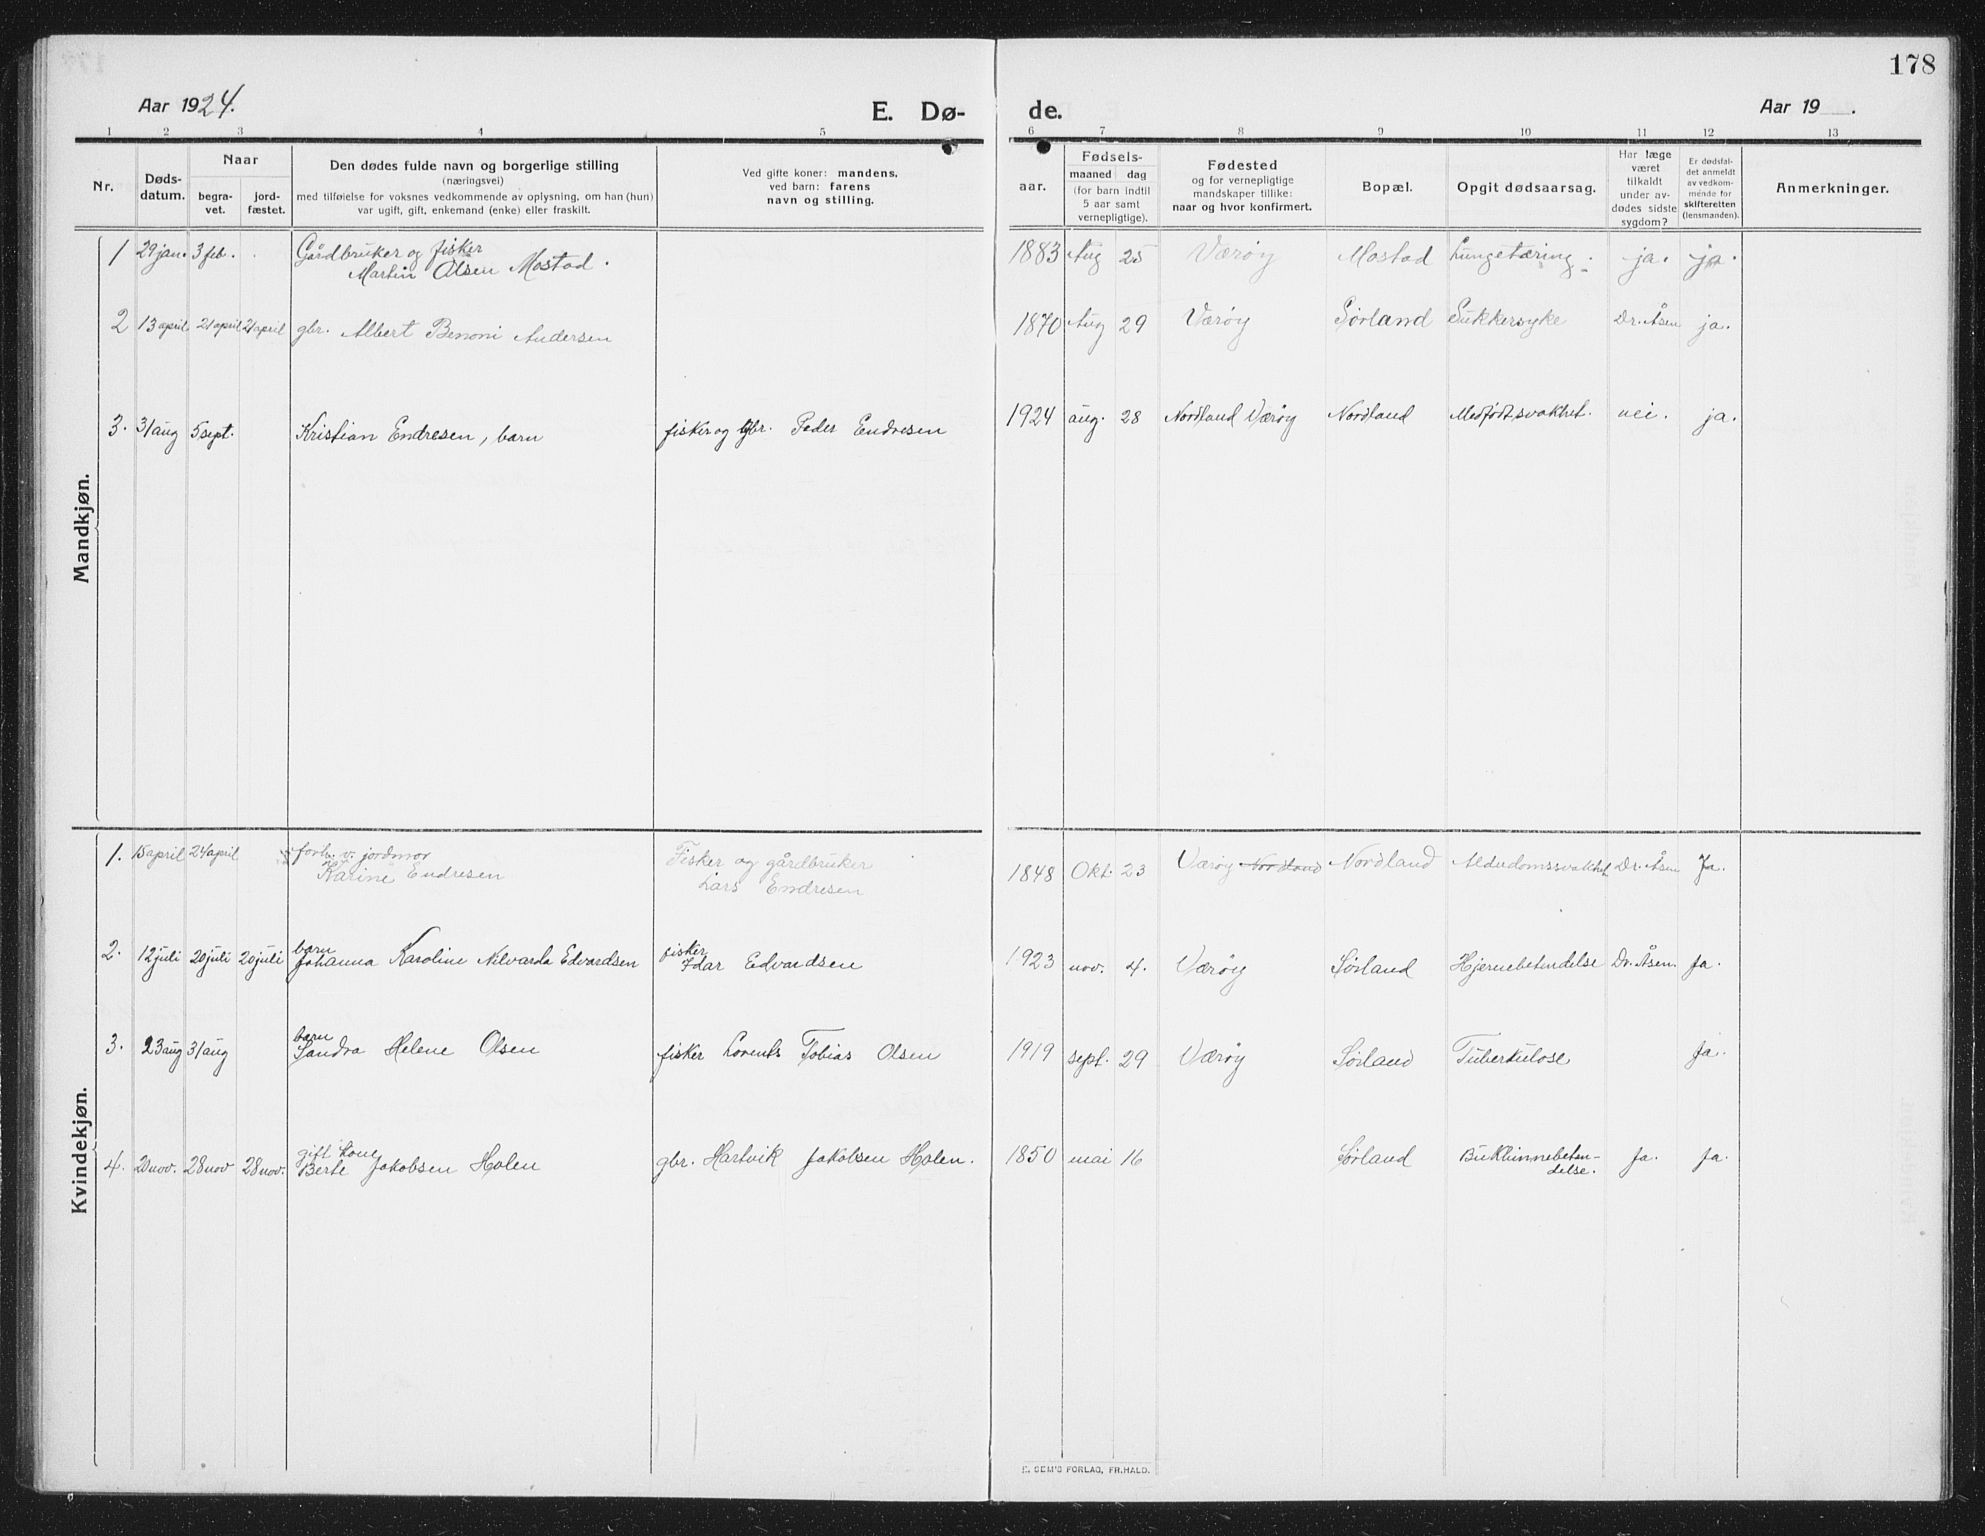 178
Aar 1924.
E. Dø-
de.
Aar 19 .
1 2 3 4 5 6 7 8 9 10 11 12 13
Nr.
Døds-
datum.
Naar
begra-
vet.
jord-
fæstet.
Den dødes fulde navn og borgerlige stilling
(næringsvei)
med tilføielse for voksnes vedkommende av oplysning, om han (hun)
var ugift, gift, enkemand (enke) eller fraskilt.
Ved gifte koner: mandens,
ved barn: farens
navn og stilling.
aar.
Fødsels-
maaned dag
(for barn indtil
5 aar samt
vernepligtige).
Fødested
og for vernepligtige
mandskaper tillike:
naar og hvor konfirmert.
Bopæl.
Opgit dødsaarsag.
Har læge
været
tilkaldt
under av-
dødes sidste
sygdom?
Er dødsfal-
det anmeldt
av vedkom-
mende for
skifteretten
(lensmanden).
Anmerkninger.
Mandkjøn.
1 29 jan. 3 feb. Gårdbruker og fisker
Martin Olsen Mostad.
1883 Aug 25 Værøy Mostad Lungetæring. ja. ja.
2 13 april 21 april 21 april gbr. Albert Benoni Andersen
1870 Aug 29 Værøy Sørland Sukkersyke Dr. Åsen ja.
3. 31 aug 5 sept. Kristian Endresen, barn fisker og gbr. Peder Endresen
1924 aug. 28 Nordland Værøy Nordland Medfødt svakhet. nei. ja.
Kvindekjøn.
1. 15 april 24 april forh. v. jordmor
Karine Endresen
Fisker og gårdbruker
Lars Endresen
1848 Okt. 23 Værøy Nordland Nordland Alderdomssvakhet Dr. Åsen Ja.
2. 12 juli 20 juli 20 juli barn
Johanna Karoline Nilvarda Edvardsen
fisker
Idar Edvardsen
1923 nov. 4. Værøy Sørland Hjernebetendelse Dr. Åsen. Ja.
3. 23 aug 31 aug barn
Sandra Helene Olsen fisker Lorents Tobias Olsen
1919 sept. 29 Værøy Sørland Tuberkulose Ja.
4. 20 nov. 28 nov 28 nov. gift kone
Berte Jakobsen Holen gbr. Hartvik Jakobsen Holen.
1850 mai 16 Sørland Bukhinnebeten-
delse. Ja. Ja.
E. SEM'S FORLAG, FR.HALD.